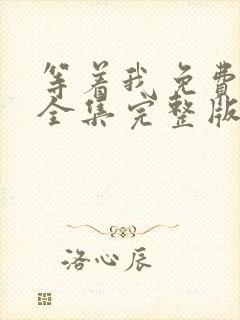 等着我免费
全集完整版
洛心辰